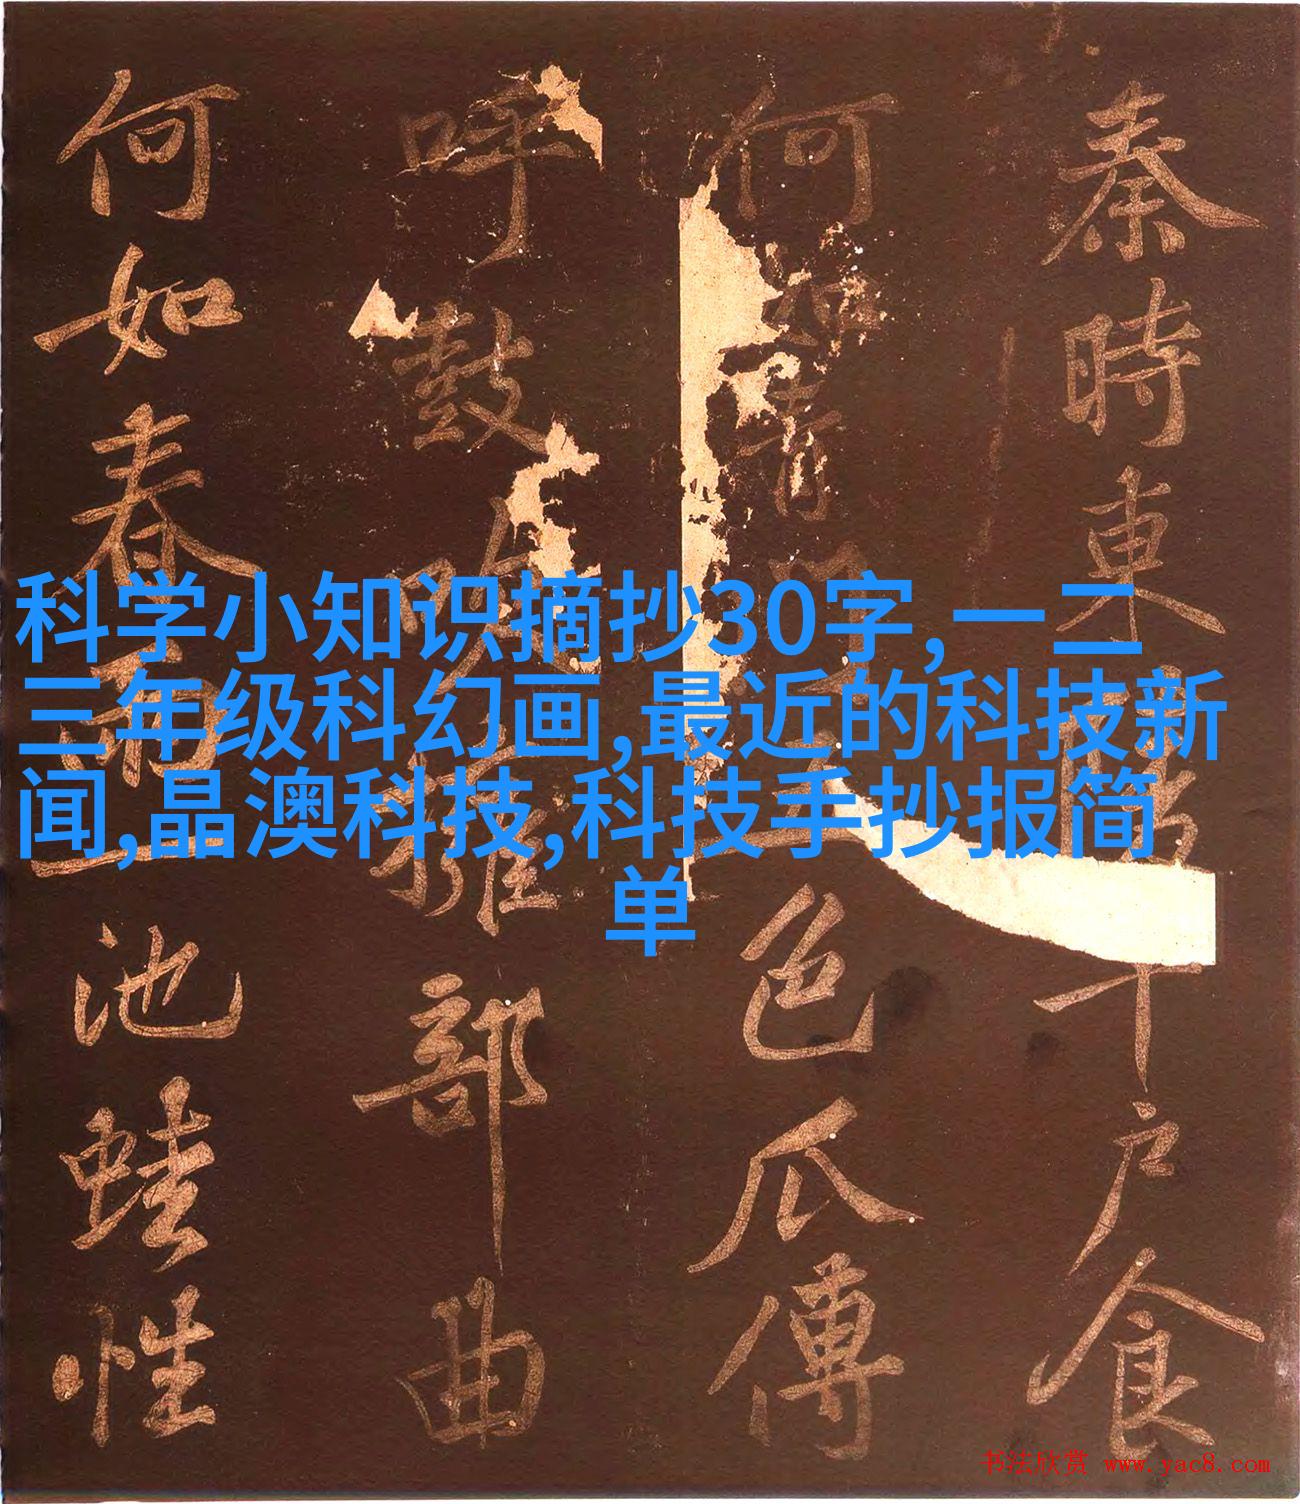 秦時東陵千戶食
何如青門五色瓜傅
呼鼓吹擁部曲
何如春雨一池蛙性
科学小知识摘抄30字,一二
三年级科幻画,最近的科技新
闻,晶澳科技,科技手抄报简
单
书法欣赏 www.yac8.com